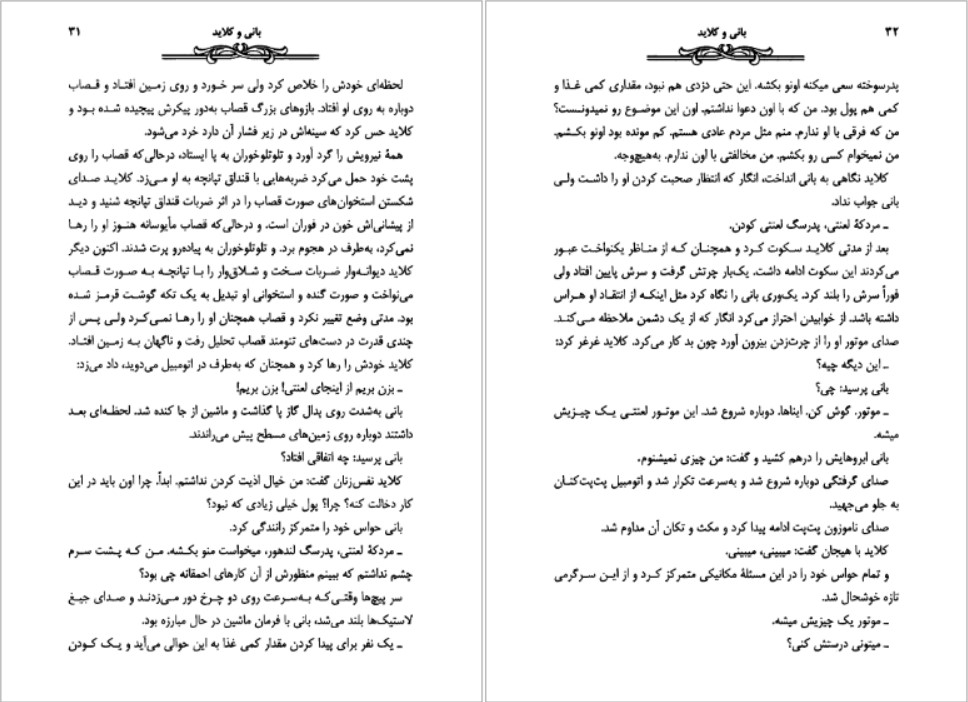 بانی و کلاید
۳۱
لحظه‌ای خودش را خلاص کرد ولی سر خورد و روی زمین افتاد و قصاب
دوباره به روی او افتاد. بازوهای بزرگ قصاب به‌دور پیکرش پیچیده شده بود و
کلاید حس کرد که سینه‌اش در زیر فشار آن دارد خرد می‌شود.
همهٔ نیرویش را گرد آورد و تلوتلوخوران به پا ایستاد، درحالی‌که قصاب را روی
پشت خود حمل می‌کرد ضربه‌هایی با قنداق تپانچه به او می‌زد. کلاید صدای
شکستن استخوان‌های صورت قصاب را در اثر ضربات قنداق تپانچه شنید و دید
از پیشانی‌اش خون در فوران است. و درحالی‌که قصاب مأیوسانه هنوز او را رها
نمی‌کرد، به‌طرف در هجوم برد. و تلوتلوخوران به پیاده‌رو پرت شدند. اکنون دیگر
کلاید دیوانه‌وار ضربات سخت و شلاق‌وار را با تپانچه به صورت قصاب
می‌نواخت و صورت گنده و استخوانی او تبدیل به یک تکه گوشت قرمز شده
بود. مدتی وضع تغییر نکرد و قصاب همچنان او را رها نمی‌کرد ولی پس از
چندی قدرت در دست‌های تنومند قصاب تحلیل رفت و ناگهان به زمین افتاد.
کلاید خودش را رها کرد و همچنان که به‌طرف در اتومبیل می‌دوید، داد می‌زد:
ـ بزن بریم از اینجای لعنتی! بزن بریم!
بانی به‌شدت روی پدال گاز پا گذاشت و ماشین از جا کنده شد. لحظه‌ای بعد
داشتند دوباره روی زمین‌های مسطح پیش می‌راندند.
بانی پرسید: چه اتفاقی افتاد؟
کلاید نفس‌زنان گفت: من خیال اذیت کردن نداشتم. ابداً. چرا اون باید در این
کار دخالت کنه؟ چرا؟ پول خیلی زیادی که نبود؟
بانی حواس خود را متمرکز رانندگی کرد.
ـ مردکهٔ لعنتی، پدرسگ لندهور، میخواست منو بکشه. من که پشت سرم
چشم نداشتم که ببینم منظورش از آن کارهای احمقانه چی بود؟
سر پیچ‌ها وقتی‌که به‌سرعت روی دو چرخ دور می‌زدند و صدای جیغ
لاستیک‌ها بلند می‌شد، بانی با فرمان ماشین در حال مبارزه بود.
ـ یک نفر برای پیدا کردن مقدار کمی غذا به این حوالی می‌آید و یک کودن
بانی و کلاید
۳۲
پدرسوخته سعی میکنه اونو بکشه. این حتی دزدی هم نبود، مقداری کمی غذا و
کمی هم پول بود. من که با اون دعوا نداشتم. اون این موضوع رو نمیدونست؟
من که فرقی با او ندارم. منم مثل مردم عادی هستم. کم مونده بود اونو بکشم.
من نمیخوام کسی رو بکشم. من مخالفتی با اون ندارم. به‌هیچ‌وجه.
کلاید نگاهی به بانی انداخت، انگار که انتظار صحبت کردن او را داشت ولی
بانی جواب نداد.
ـ مردکهٔ لعنتی، پدرسگ لعنتی کودن.
بعد از مدتی کلاید سکوت کرد و همچنان که از مناظر یکنواخت عبور
می‌کردند این سکوت ادامه داشت. یک‌بار چرتش گرفت و سرش پایین افتاد ولی
فوراً سرش را بلند کرد. یک‌وری بانی را نگاه کرد مثل اینکه از انتقاد او هراس
داشته باشد. از خوابیدن احتراز می‌کرد انگار که از یک دشمن ملاحظه می‌کند.
صدای موتور او را از چرت‌زدن بیزون آورد چون بد کار می‌کرد. کلاید غرغر کرد:
ـ این دیگه چیه؟
بانی پرسید: چی؟
ـ موتور. گوش کن. ایناها. دوباره شروع شد. این موتور لعنتی یک چیزیش
میشه.
بانی ابروهایش را درهم کشید و گفت: من چیزی نمیشنوم.
صدای گرفتگی دوباره شروع شد و به‌سرعت تکرار شد و اتومبیل پت‌پت‌کنان
به جلو می‌جهید.
صدای ناموزون پت‌پت ادامه پیدا کرد و مکث و تکان آن مداوم شد.
کلاید با هیجان گفت: میبینی، میبینی.
و تمام حواس خود را در این مسئلهٔ مکانیکی متمرکز کرد و از این سرگرمی
تازه خوشحال شد.
ـ موتور یک چیزیش میشه.
ـ میتونی درستش کنی؟